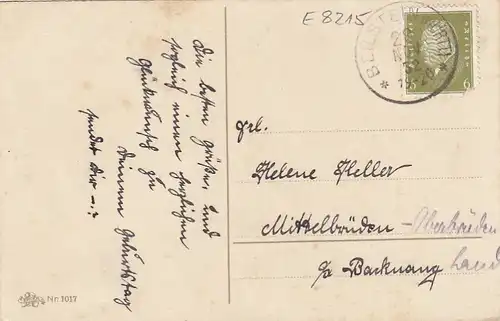 E 8215
Die besten Grüße, und
zugleich einen herzlichen
Glückwunsch zu
Deinem Geburtstag
sendet Dir –.?
Frl.
Helene Heller
Mittelbrüden – Oberbrüden
b/ Backnang Land
6
Nr. 1017